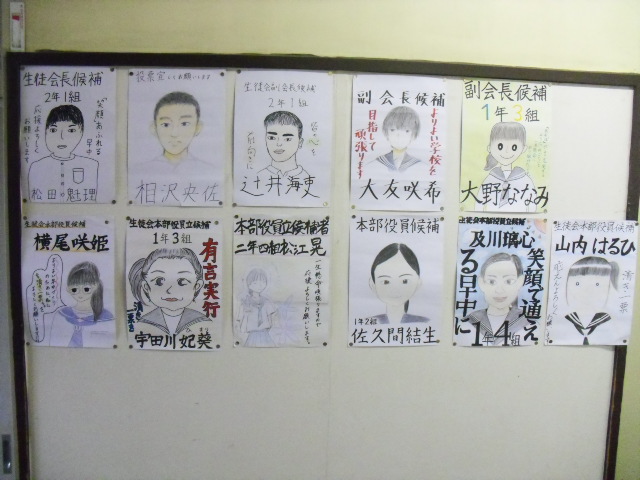 生徒会長候補
2年1組
笑顔あふれる
早中
応援よろしく
お願いします
松田魁理
投票宜しくお願いします
相沢央佐
生徒会副会長候補
2年1組
辻井海吏
副会長候補
よりよい学校を
目指して
頑張ります
大友咲希
副会長候補
1年3組
大野ななみ
生徒会本部役員立候補
横尾咲姫
生徒会本部役員立候補
1年3組
有言実行
清き一票を
宇田川妃葵
本部役員立候補者
二年四組松江晃
一生懸命頑張りますので
応援よろしくお願いします。
本部役員候補
1年2組
佐久間結生
生徒会本部役員立候補
及川璃心
笑顔で通え
る早中に
1年4組
生徒会本部役員候補
山内はるひ
清き一票